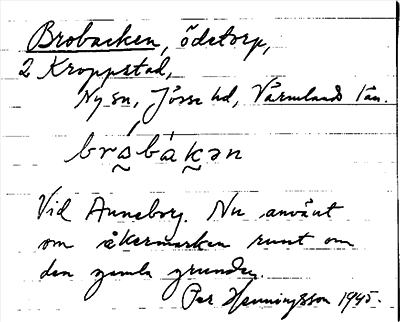 Brobacken, ödetorp,
2 Kroppstad,
Ny sn, Jösse hd, Värmlands län.
brobakən
Vid Anneborg. Nu använt
om åkermarken runt om
den gamla grunden.
Per Henningsson 1945.